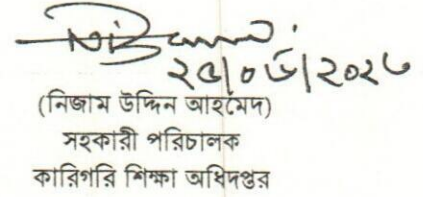 ২৫/০৬/২০২৩
(নিজাম উদ্দিন আহমেদ)
সহকারী পরিচালক
কারিগরি শিক্ষা অধিদপ্তর